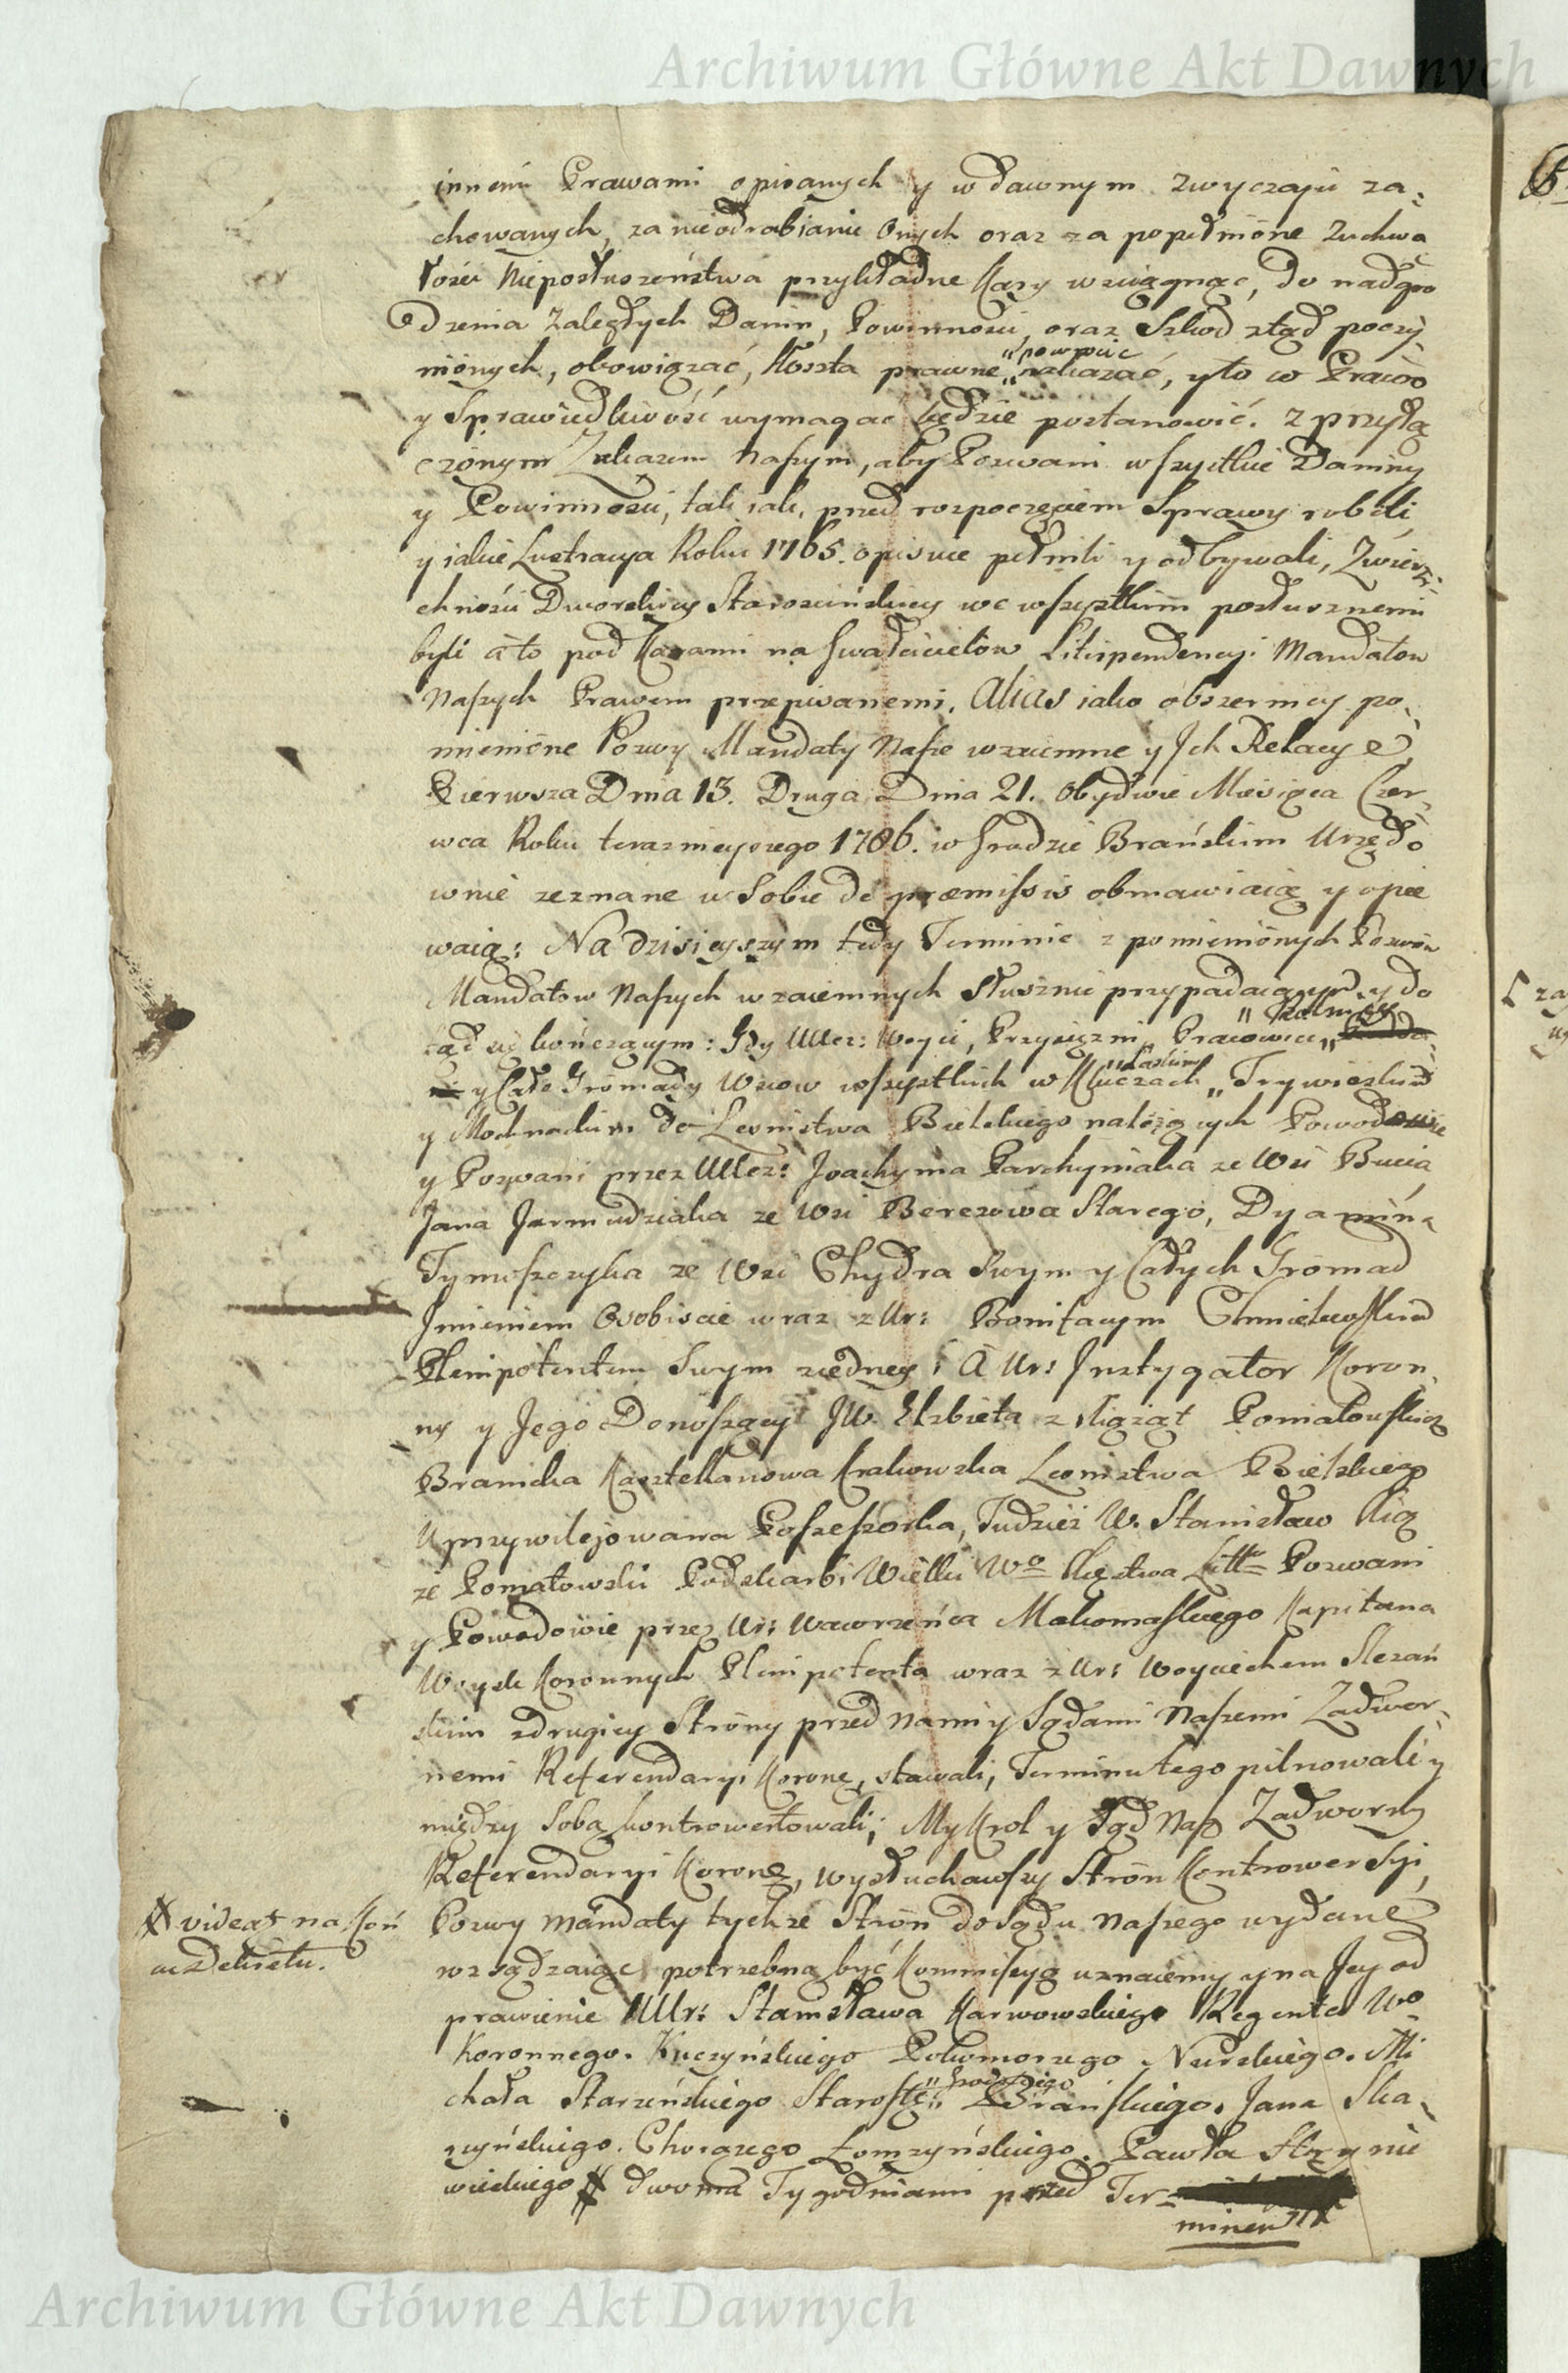 Archiwum Główne Akt Dawnych
innemi Prawami opisanych y w dawnym zwyczaju za-
chowanych, za nieodrabianie Onych oraz za popełnione Zuchwa
łości Nieposłuszeństwa przykładne Kary wściągnąć, do nadgro
dzenia Zaległych Danin, Powinności, oraz Szkod ztąd poczy-
nionych, obowiązać, Koszta prawne „powrocić
nakazać, y to co Prawo
y Sprawiedliwość wymagać będzie postanowić. z przyłą
czonym Zakazem Naszym, aby Pozwani wszystkie Daniny
y Powinności, tak iak, przed rozpoczęciem Sprawy robili
y iakie Lustracya Roku 1765. opisuie pełnili y odbywali, Zwierz-
chności Dworskiey Starościńskiey we wszystkim posłusznemi
byli a to pod Karami na Gwałcicielow Litispendencyi Mandatow
Naszych Prawem przepisanemi. Alias iako obszerniey po-
mienione Pozwy Mandaty Nasze wzaiemne y Ich Relacye
Pierwsza Dnia 13. Druga Dnia 21. obydwie Miesiąca Czer-
wca Roku teraznieyszego 1786. w Grodzie Brańskim Urzędo
wnie zeznane w Sobie de praemissis obmawiaią y opie
waią: Na dzisieyszym tedy Terminie z pomienionych Pozwów
Mandatow Naszych wzaiemnych słusznie przypadaiącym y do
tąd się kończącym: Gdy UUcz: Woyci, Przysiężni, Pracowici „Rolnicy
y Całe Gromady Wsiow wszystkich w Kluczach „Laskim Trywiezkim
y Mochnackim do Leonistwa Bielskiego należących Powodowie
y Pozwani przez UUcz: Joachyma Parchymiaka ze Wsi Bucia
Jana Jarmudziaka ze Wsi Berezowa Starego, Dyamina
Tymoszczyka ze Wsi Chydra Swym y Całych Gromad
Jmieniem Osobiscie wraz z Ur: Bonifacym Chmielewskim
Plenipotentem Swym z iedney; A Ur: Jnstygator Koron-
ny y Jego Donoszący JW. Elzbieta z Xiążąt Poniatowskich
Branicka Kasztellanowa Krakowska Leonistwa Bielskiego
Uprzywilejowana Possessorka, Tudzież W. Stanisław Xią
że Poniatowski Podskarbi Wielki Wo Xięstwa Litt Pozwani
y Powodowie przez Ur: Wawrzeńca Makomaskiego Kapitana
Woysk Koronnych Plenipotenta wraz z Ur: Woyciechem Slezań
skim z drugiey Strony przed Nami y Sądami Naszemi Zadwor-
nemi Referendaryi Koronę, stawali, Terminu tego pilnowali y
między Sobą kontrowertowali; My Krol y Sąd Nasz Zadworny
Referendaryi Koronę, wysłuchawszy Stron Kontrowersyi,
Pozwy Mandaty tychże Stron do Sądu Naszego wydane
# videat na Koń
cu Dekretu.
rozsądzaiąc potrzebną być Kommissyą uznaiemy y na Jey od
prawienie UUr: Stanisława Karwowskiego Regenta Wo
Koronnego. Kuczyńskiego Podkomorzego Nurskiego. Mi
chała Starzeńskiego Starostę „Grodzkiego Brańskiego. Jana Ska-
rzyńskiego. Chorążego Łomzyńskiego. Pawła Strynie
wieckiego # dwoma Tygodniami przed Ter-
minem
Archiwum Główne Akt Dawnych